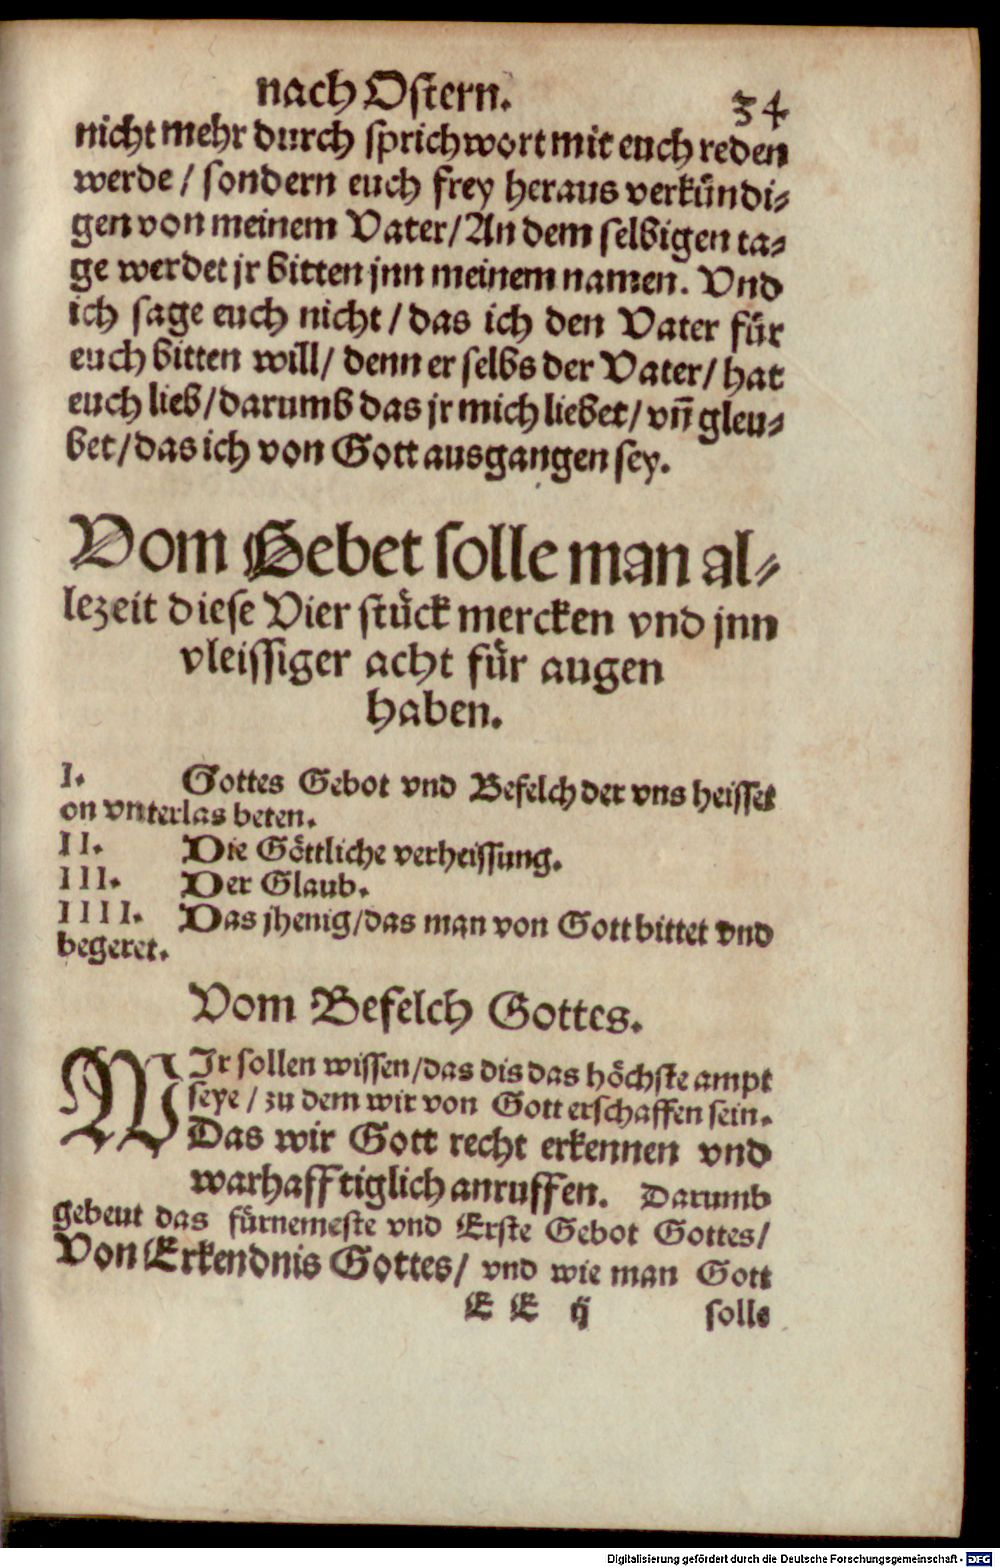 nach Ostern. 34
nicht mehr durch sprichwort mit euch reden
werde / sondern euch frey heraus verkündi⸗
gen von meinem Vater / An dem selbigen ta⸗
ge werdet jr bitten jnn meinem namen. Vnd
ich sage euch nicht / das ich den Vater für
euch bitten will / denn er selbs der Vater / hat
euch lieb / darumb das jr mich liebet / vn̄ gleu⸗
bet / das ich von Gott ausgangen sey.
Vom Gebet solle man al⸗
lezeit diese Vier stück mercken vnd jnn
vleissiger acht für augen
haben.
I. Gottes Gebot vnd Befelch der vns heisset
on vnterlas beten.
II. Die Göttliche verheissung.
III. Der Glaub.
IIII. Das jhenig / das man von Gott bittet vnd
begeret.
Vom Befelch Gottes.
WJr sollen wissen / das dis das höchste ampt
seye / zu dem wir von Gott erschaffen sein.
Das wir Gott recht erkennen vnd
warhafftiglich anruffen. Darumb
gebeut das fürnemeste vnd Erste Gebot Gottes /
Von Erkendnis Gottes / vnd wie man Gott
E E ij solle
Digitalisierung gefördert durch die Deutsche Forschungsgemeinschaft - DFG